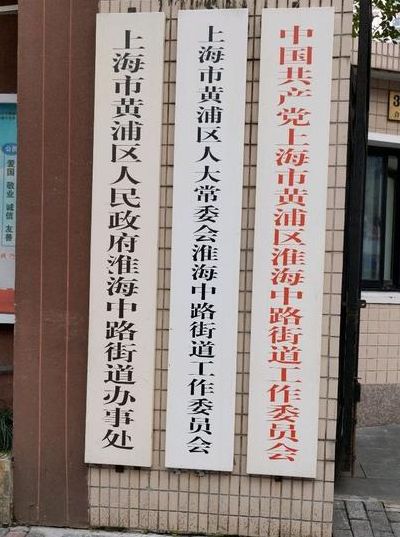 中国共产党上海市黄浦区淮海中路街道工作委员会
上海市黄浦区人大常委会淮海中路街道工作委员会
上海市黄浦区人民政府淮海中路街道办事处
爱国 敬业 诚信 友善